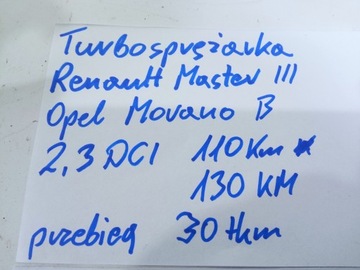 Turbosprężarka
Renault Master III
Opel Movano B
2,3 DCI 110 Km
130 KM
przebieg 30 tkm